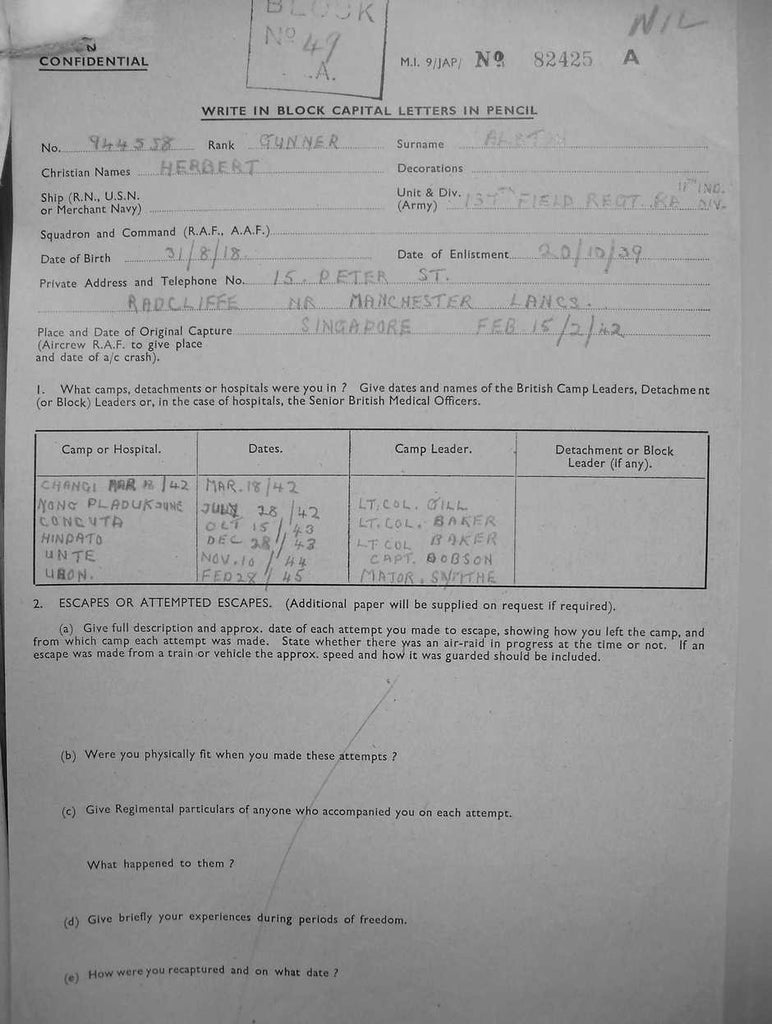 BLOCK
Nº 49
A.
NIL
CONFIDENTIAL
M.I. 9/JAP/ Nº 82425 A
WRITE IN BLOCK CAPITAL LETTERS IN PENCIL
No. 944558 Rank GUNNER Surname
Christian Names HERBERT Decorations
Ship (R.N., U.S.N. or Merchant Navy)
Unit & Div. (Army) FIELD REGT. RA 11TH IND. DIV.
Squadron and Command (R.A.F., A.A.F.)
Date of Birth 31/8/18. Date of Enlistment 20/10/39
Private Address and Telephone No. 15. PETER ST.
RADCLIFFE NR MANCHESTER LANCS.
Place and Date of Original Capture SINGAPORE FEB 15/2/42
(Aircrew R.A.F. to give place
and date of a/c crash).
1. What camps, detachments or hospitals were you in ? Give dates and names of the British Camp Leaders, Detachment
(or Block) Leaders or, in the case of hospitals, the Senior British Medical Officers.
Camp or Hospital. Dates. Camp Leader. Detachment or Block
Leader (if any).
CHANGI MAR 18/42 MAR. 18/42
NONG PLADUK JUNE 28/42 LT. COL. GILL
OCT 15/43 LT. COL. BAKER
HINDATO DEC 28/43 LT COL BAKER
UNTE NOV. 10/44 CAPT. DOBSON
UBON. FEB 28/45 MAJOR. SMYTHE
2. ESCAPES OR ATTEMPTED ESCAPES. (Additional paper will be supplied on request if required).
(a) Give full description and approx. date of each attempt you made to escape, showing how you left the camp, and
from which camp each attempt was made. State whether there was an air-raid in progress at the time or not. If an
escape was made from a train or vehicle the approx. speed and how it was guarded should be included.
(b) Were you physically fit when you made these attempts ?
(c) Give Regimental particulars of anyone who accompanied you on each attempt.
What happened to them ?
(d) Give briefly your experiences during periods of freedom.
(e) How were you recaptured and on what date ?